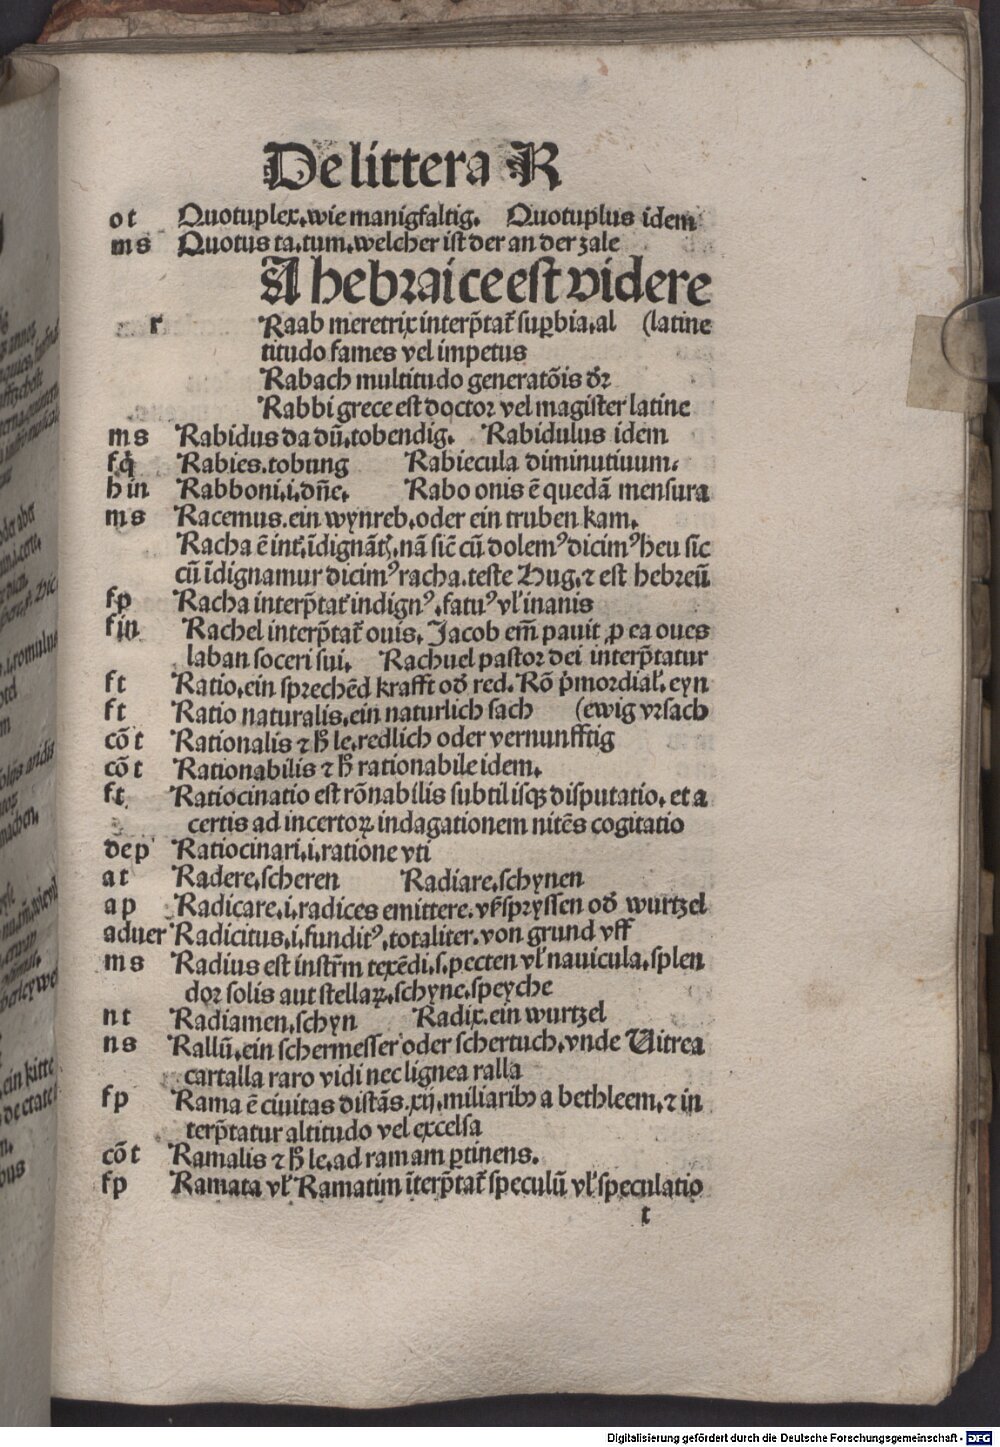 De littera R
ot Quotuplex.wie manigfaltig. Quotuplus idem
ms Quotus ta.tum.welcher ist der an der zale
A hebraice est videre
r Raab meretrix interp̃tat᷑ sup̱bia.al (latine
titudo fames vel impetus
Rabach multitudo generatõis dr̄
Rabbi grece est doctor vel magister latine
ms Rabidus da dū.tobendig. Rabidulus idem
fq̇ Rabies.tobung Rabiecula diminutiuum.
h in Rabboni.i.dñe. Rabo onis ē quedā mensura
ms Racemus.ein wynreb.oder ein truben kam.
Racha ē int᷑.īdignãt᷑.nā sic̄ cū dolemꝰ dicimꝰ heu sic
cū īdignamur dicimꝰ racha.teste Hug.⁊ est hebreū
fp Racha interp̃tat᷑ indignꝰ.fatuꝰ vl᷑ inanis
fin Rachel interp̃tat᷑ ouis. Jacob em̄ pauit ꝓ ea oues
laban soceri sui. Rachuel pastor dei interp̃tatur
ft Ratio.ein sprechēd krafft od᷑ red. Rō p̍mordial᷑.eyn
ft Ratio naturalis.ein naturlich sach (ewig vrsach
cō t Rationalis ⁊ h̄ le.redlich oder vernunfftig
cō t Rationabilis ⁊ h̄ rationabile idem.
ft Ratiocinatio est rōnabilis subtilisqꝫ disputatio. et a
certis ad incertoꝝ indagationem nitēs cogitatio
dep Ratiocinari.i.ratione vti
at Radere.scheren Radiare.schynen
ap Radicare.i.radices emittere.vßspryssen od᷑ wurtzel
aduer Radicitus.i.funditꝰ.totaliter.von grund vff
ms Radius est instr̄m texēdi.s.pecten vl᷑ nauicula.splen
dor solis aut stellaꝝ.schyne.speyche
nt Radiamen.schyn Radix.ein wurtzel
ns Rallū.ein schermesser oder schertuch.vnde Vitrea
cartalla raro vidi nec lignea ralla
fp Rama ē ciuitas distās.xij.miliaribꝰ a bethleem.⁊ in
terp̃tatur altitudo vel excelsa
cō t Ramalis ⁊ h̄ le.ad ramam ꝑtinens.
fp Ramata vl᷑ Ramatim īterp̃tat᷑ speculū vl᷑ speculatio
t
Digitalisierung gefördert durch die Deutsche Forschungsgemeinschaft - DFG